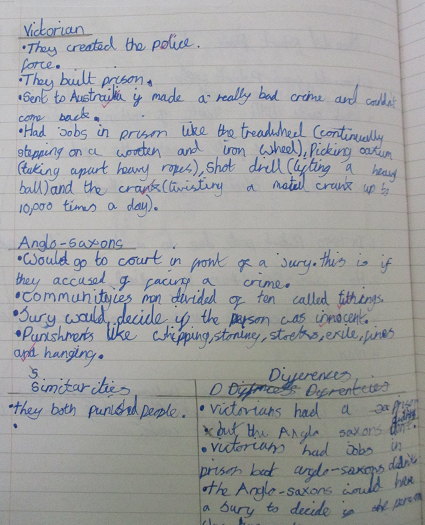 Victorian
•They created the police.
force.
•They built prison.
•Sent to Australia if made a really bad crime and couldnt
come back.
•Had Jobs in prison like the treadwheel (continually
stepping on a wooten and iron wheel), Picking oakum
(taking apart heavy ropes), Shot drill (lifting a heavy
ball) and the crank (twisting a metal crank up to
10,000 times a day).
Anglo-saxons
•Would go to court in front of a Jury. this is if
they accused of facing a crime.
•Communityies men divided of ten called tithings.
•Jury would decide if the person was innocent.
•Punishments like whipping, stoning, stocks, exile, fines
and hanging.
S
Similarities
•they both punished people.
•
Differences
D
•Victorians had a prison
but the Anglo saxons didnt.
•Victorians had Jobs in
prison but anglo-saxons didnt
•the Anglo-saxons would have
a Jury to decide if the person